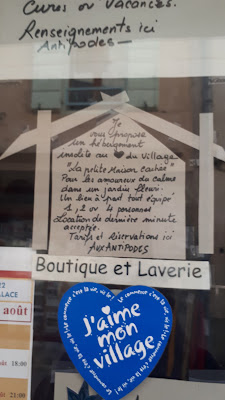 Cures ou Vacances.
Renseignements ici
Antipodes
Je
vous propose
un hébergement
insolite au ♥ du Village
"La petite Maison cachée"
Pour les amoureux du calme
dans un jardin fleuri.
Un bien à part tout équipé
1, 2 ou 4 personnes
Location de dernière minute
acceptée.
Tarifs et réservations ici
AUX ANTIPODES
Boutique et Laverie
22
LACE
août
18:00
Le commerce c'est la vie, vas-le!
j'aime
mon
village